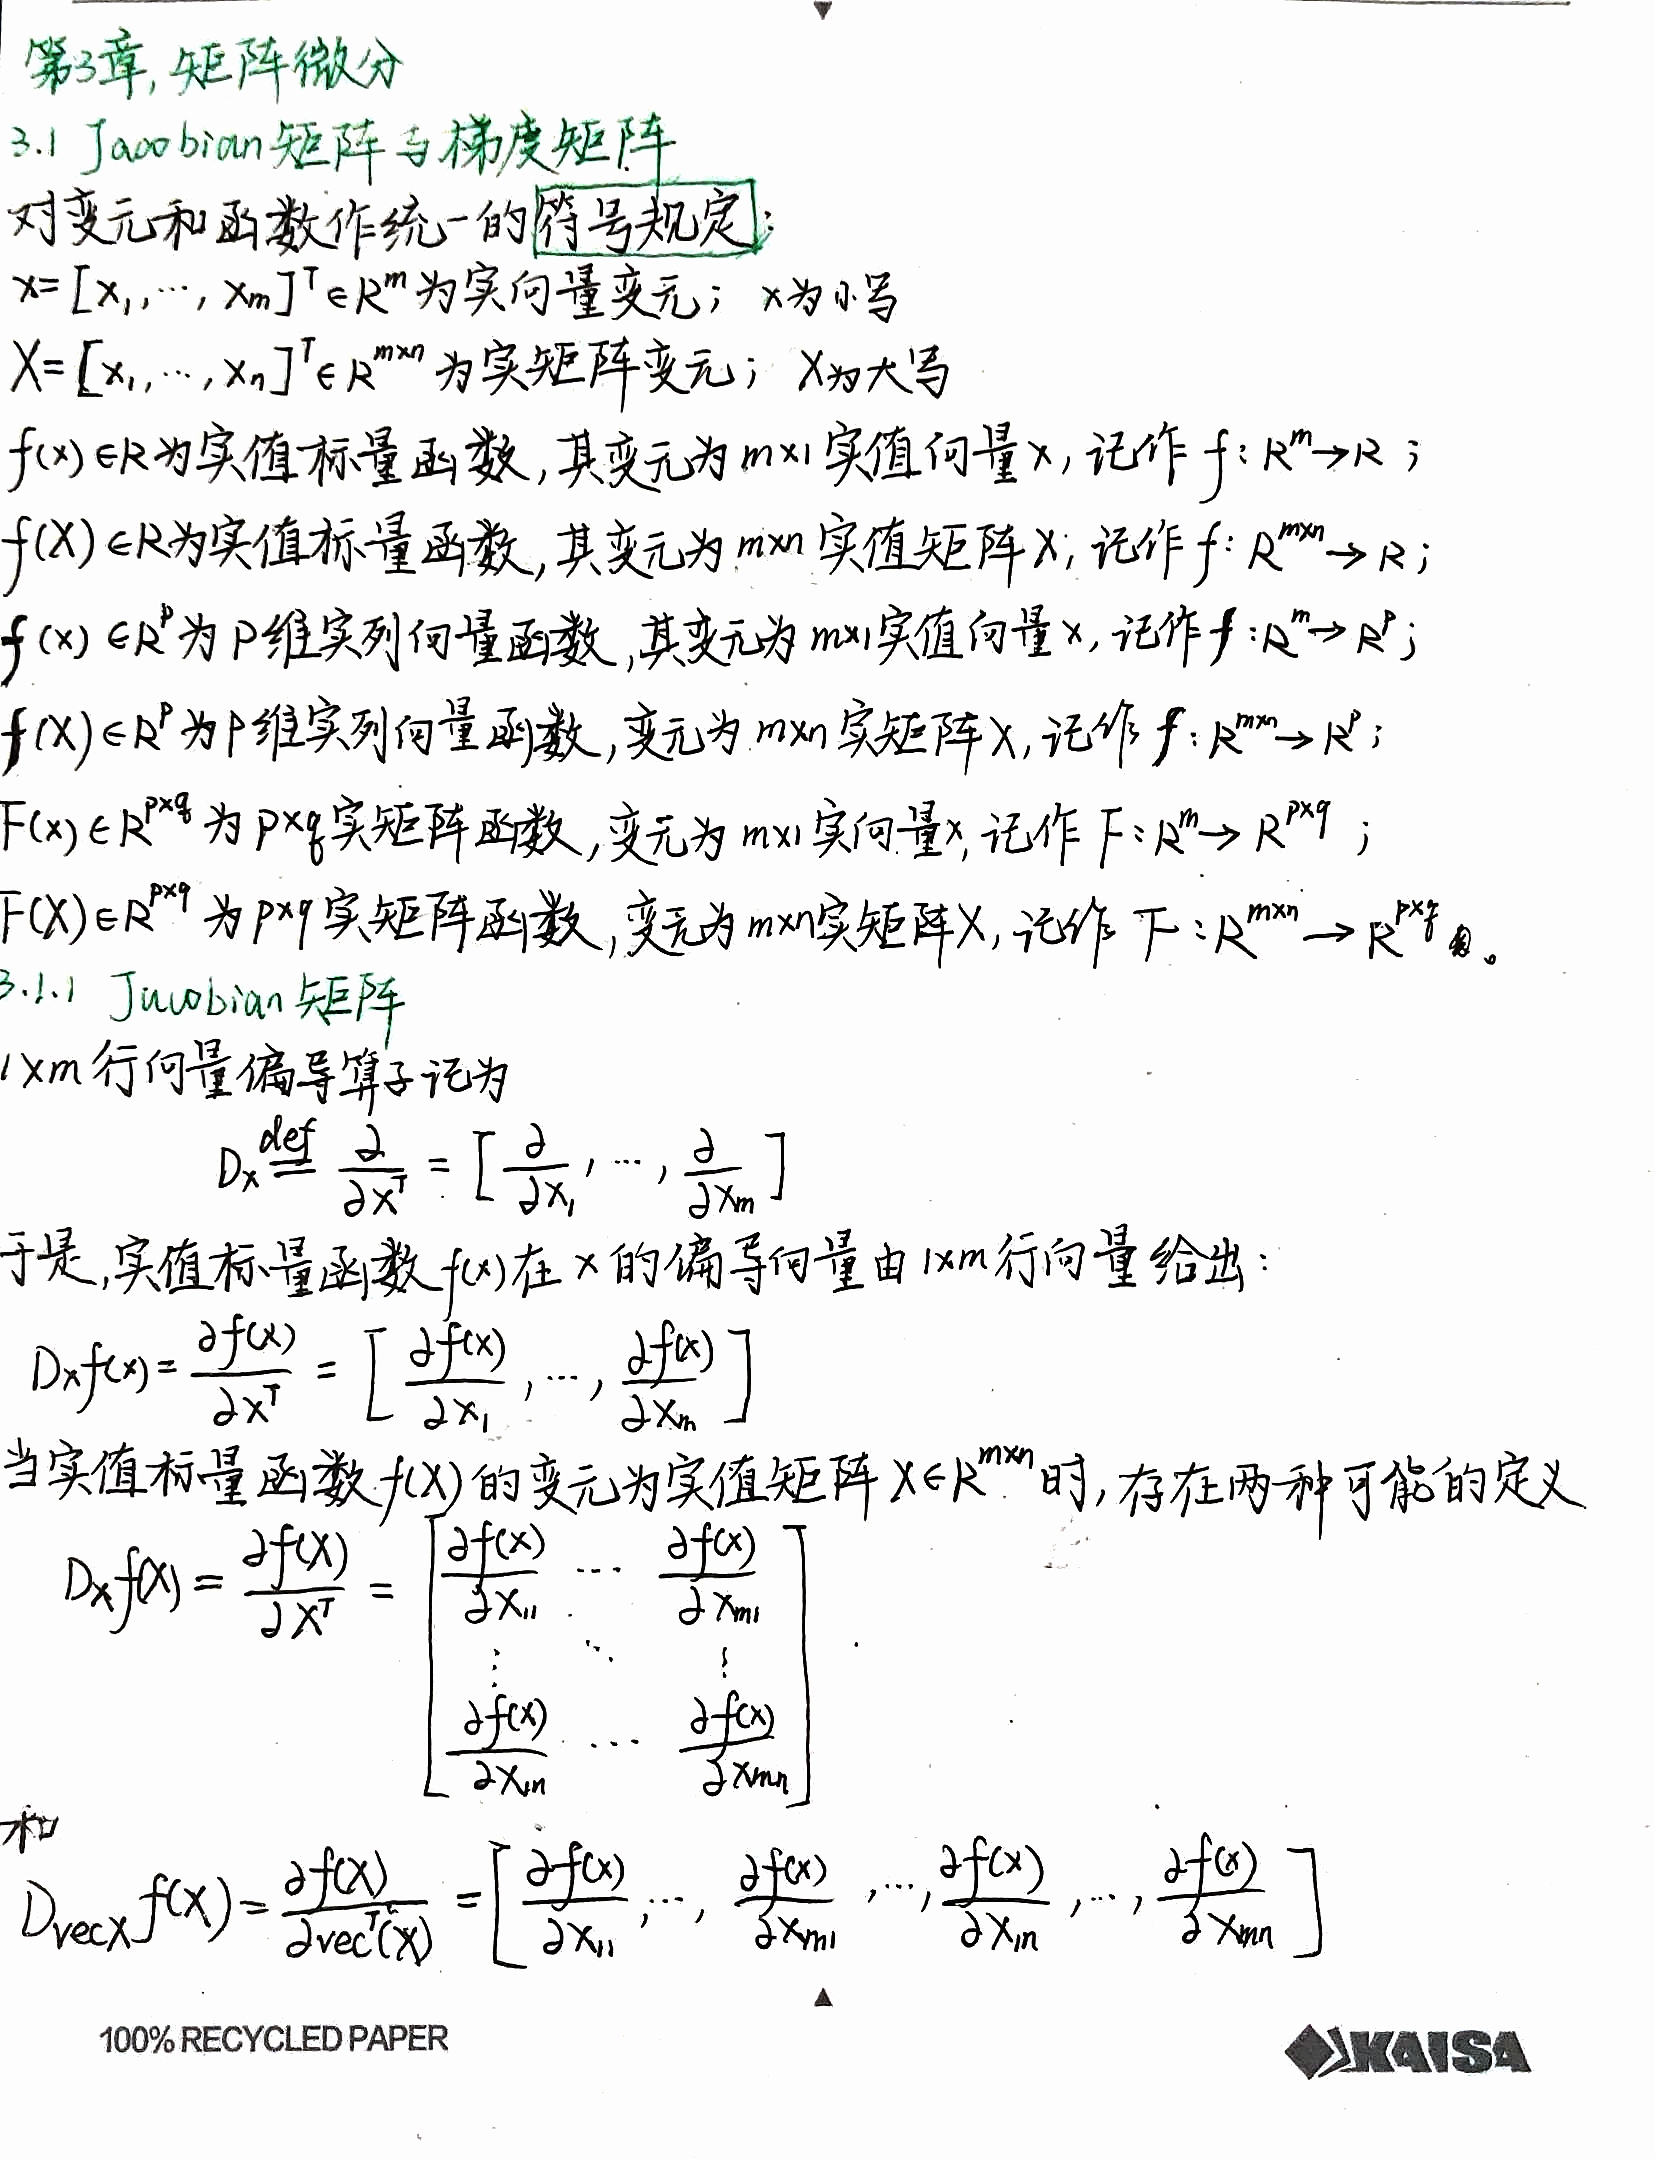 第3章,矩阵微分
3.1 Jacobian矩阵与梯度矩阵
对变元和函数作统一的符号规定:
x=[x₁,⋯,xₘ]ᵀ∈Rᵐ为实向量变元; x为小写
X=[x₁,⋯,xₙ]ᵀ∈R^{m×n}为实矩阵变元; X为大写
f(x)∈R为实值标量函数,其变元为m×1实值向量x,记作 f:Rᵐ→R;
f(X)∈R为实值标量函数,其变元为m×n实值矩阵X;记作 f:R^{m×n}→R;
f(x)∈R^p为p维实列向量函数,其变元为m×1实值向量x,记作f:R^m→R^p;
f(X)∈R^p为p维实列向量函数,变元为m×n实矩阵X,记作f:R^{m×n}→R^p;
F(x)∈R^{p×q}为p×q实矩阵函数,变元为m×1实向量x,记作F:R^m→R^{p×q};
F(X)∈R^{p×q}为p×q实矩阵函数,变元为m×n实矩阵X,记作F:R^{m×n}→R^{p×q}。
3.1.1 Jacobian矩阵
1×m行向量偏导算子记为
D_x \overset{def}{=} ∂/∂x^T = [∂/∂x₁,⋯,∂/∂x_m]
于是,实值标量函数f(x)在x的偏导向量由1×m行向量给出:
D_x f(x)=∂f(x)/∂x^T=[∂f(x)/∂x₁,⋯,∂f(x)/∂x_m]
当实值标量函数f(X)的变元为实值矩阵X∈R^{m×n}时,存在两种可能的定义
D_X f(X)=∂f(X)/∂X^T=[∂f(X)/∂x_{11} ⋯ ∂f(X)/∂x_{m1}
⋮ ⋱ ⋮
∂f(X)/∂x_{1n} ⋯ ∂f(X)/∂x_{mn}]
和
D_{vecX} f(X)=∂f(X)/∂vec^T(X)=[∂f(X)/∂x_{11},⋯,∂f(X)/∂x_{m1},⋯,∂f(X)/∂x_{1n},⋯,∂f(X)/∂x_{mn}]
100% RECYCLED PAPER
KAISA